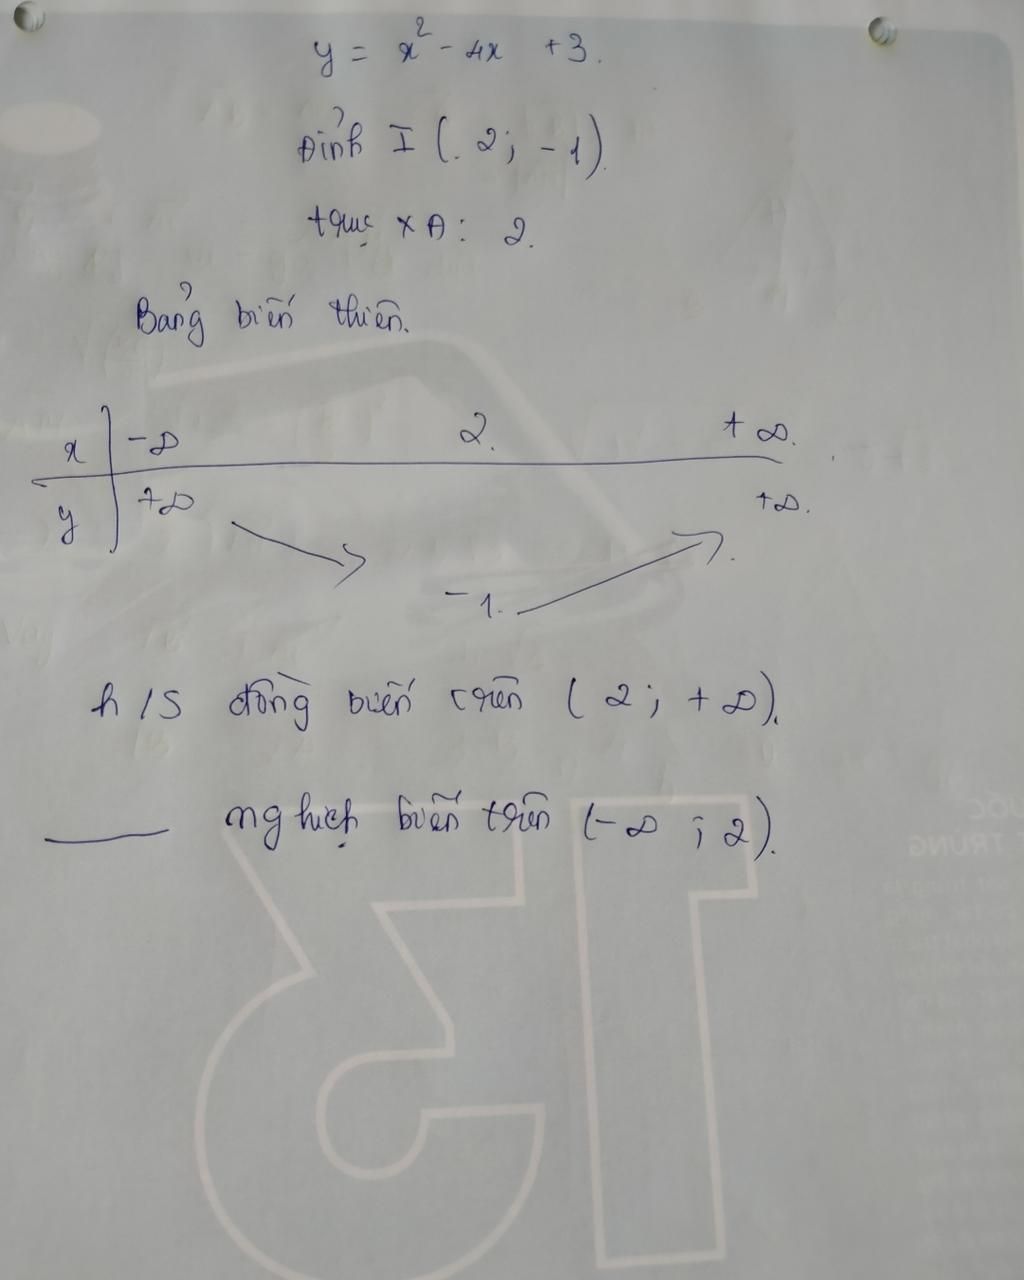 y = x² - 4x + 3.
Đỉnh I (. 2; -1).
trục x Đ: 2.
Bảng biến thiên.
x | -∞ 2. +∞.
y | +∞ +∞.
-1.
h/s đồng biến trên (2; +∞).
——— nghịch biến trên (-∞; 2).
13